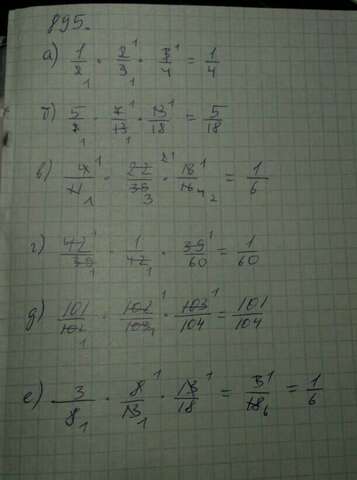 895.
а) 1/2 · 2/3 · 3/4 = 1/4
б) 5/7 · 7/13 · 13/18 = 5/18
в) 4/11 · 22/39 · 13/16 = 1/6
г) 42/39 · 1/42 · 39/60 = 1/60
д) 101/102 · 102/103 · 103/104 = 101/104
е) 3/8 · 8/13 · 13/18 = 3/18 = 1/6